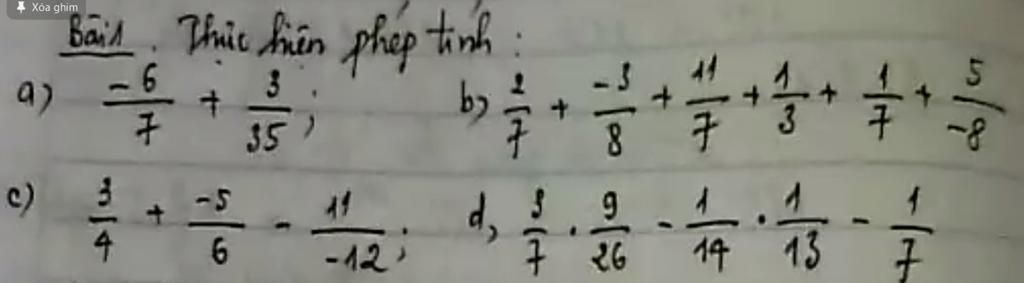 Xóa ghim
Bài 1. Thực hiện phép tính :
a) -6/7 + 3/35 ; b) 2/7 + -3/8 + 11/7 + 1/3 + 1/7 + 5/-8
c) 3/4 + -5/6 - 11/-12 ; d, 3/7 . 9/26 - 1/14 . 1/13 - 1/7